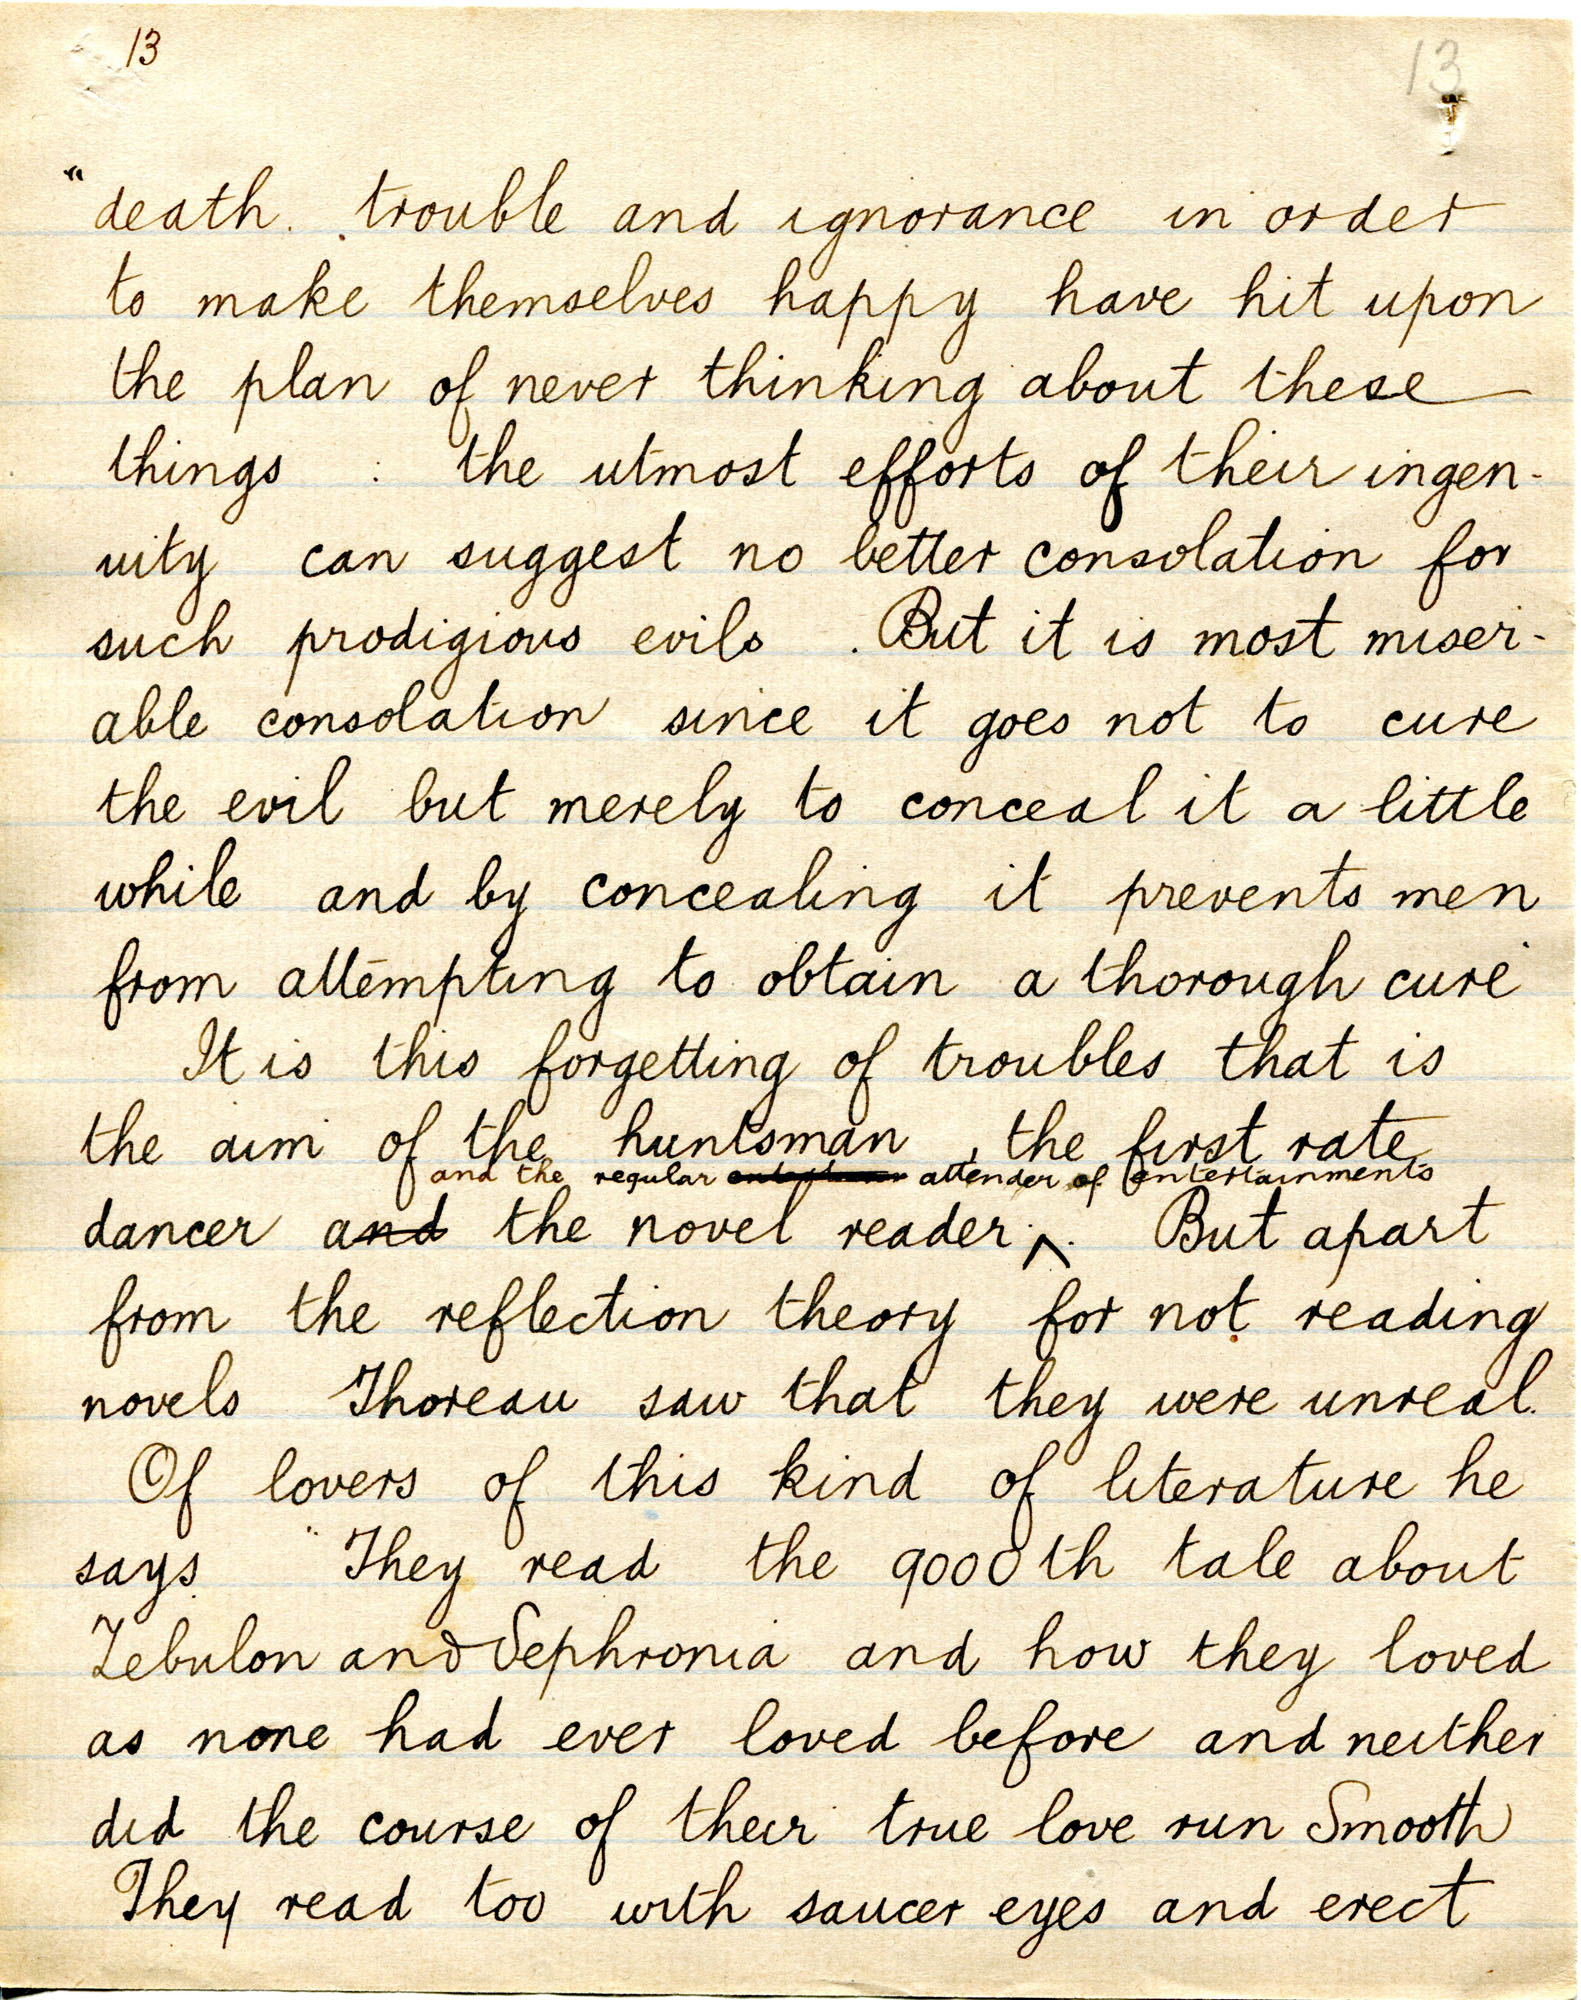 13 13
"death. trouble and ignorance in order
to make themselves happy have hit upon
the plan of never thinking about these
things : the utmost efforts of their ingen-
uity can suggest no better consolation for
such prodigious evils . But it is most miser-
able consolation since it goes not to cure
the evil but merely to conceal it a little
while and by concealing it prevents men
from attempting to obtain a thorough cure
It is this forgetting of troubles that is
the aim of the huntsman , the first rate
and the regular attender of entertainments
dancer and the novel reader ^. But apart
from the reflection theory for not reading
novels Thoreau saw that they were unreal.
Of lovers of this kind of literature he
says. "They read the 9000th tale about
Zebulon and Sephronia and how they loved
as none had ever loved before and neither
did the course of their true love run Smooth
They read too with saucer eyes and erect